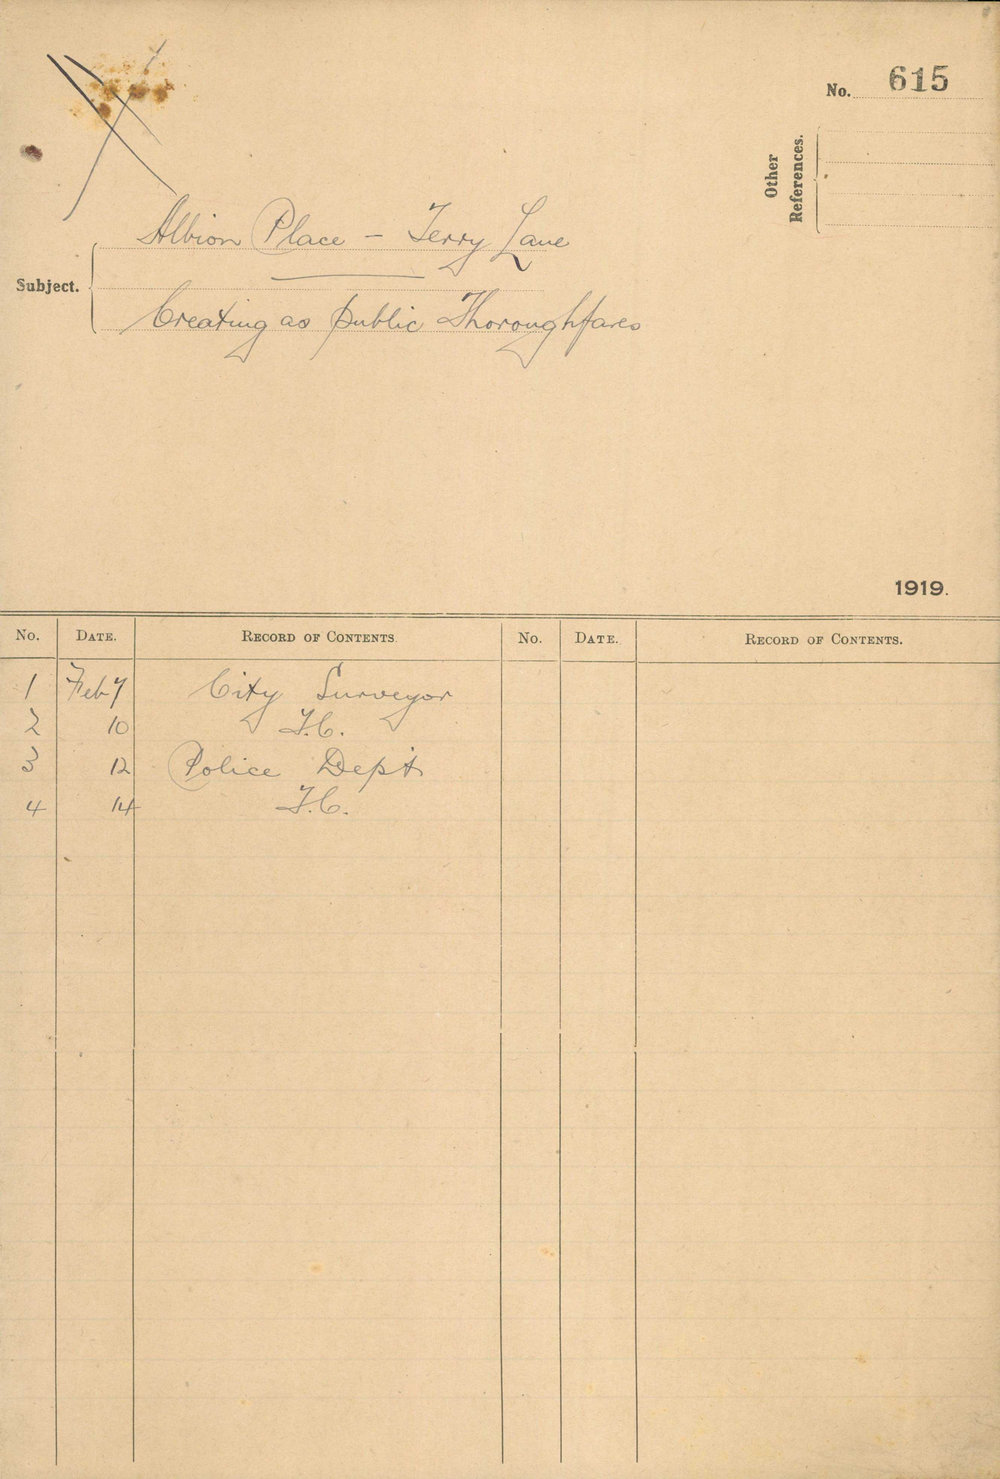 No. 615
Other References.
Subject.
Albion Place - Terry Lane
Creating as public Thoroughfares
1919.
No. DATE. RECORD OF CONTENTS. No. DATE. RECORD OF CONTENTS.
1 Feb 7 City Surveyor
2 10 T.C.
3 12 Police Dept
4 14 T.C.